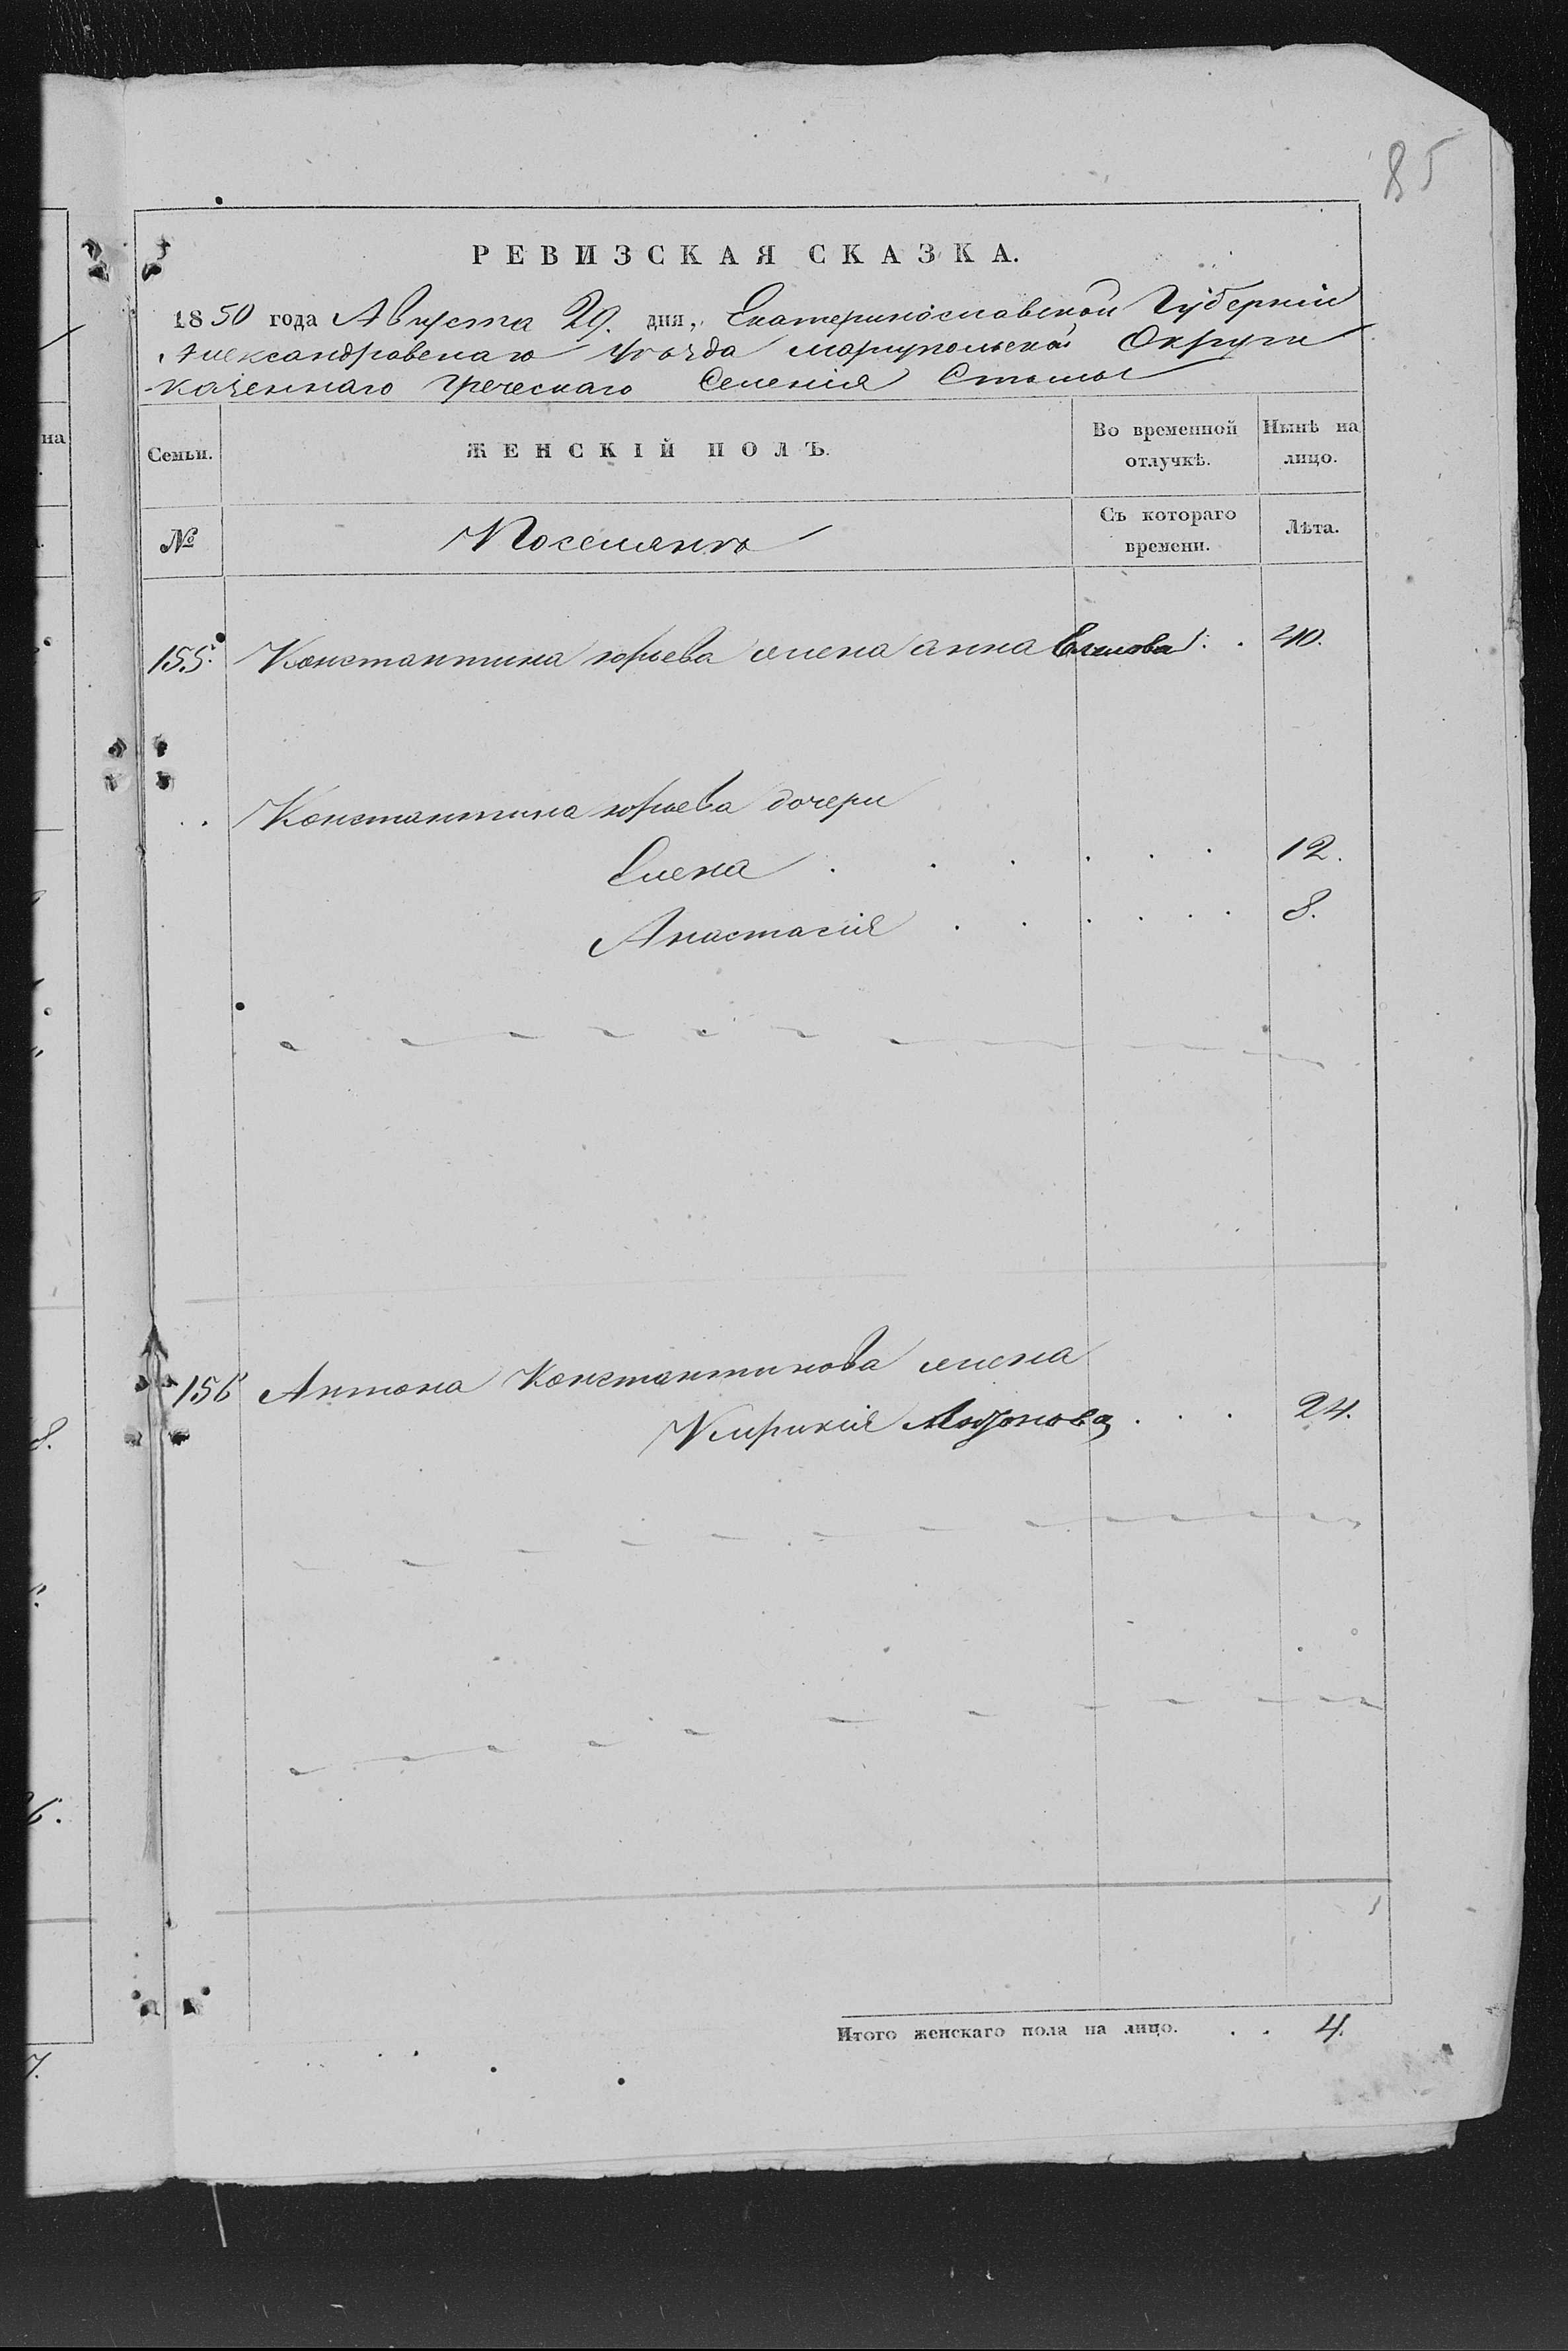 85
РЕВИЗСКАЯ СКАЗКА.
1850 года Августа 29. дня, Екатеринославской Губерніи
Александровскаго Уѣзда Мариупольской Округи
казеннаго Греческаго Селенія Стылы
Семьи.
ЖЕНСКІЙ ПОЛЪ.
Во временной отлучкѣ.
Нынѣ на лицо.
№
Поселянъ
Съ котораго времени.
Лѣта.
155. Константина юрьева жена анна . 40.
Константина юрьева дочери
Елена . . . . . . 12.
Анастасія . . . . . . 8.
156 Антона Константинова жена
Кирикія . . . 24.
Итого женскаго пола на лицо. . . 4.
на
8.
6.
7.